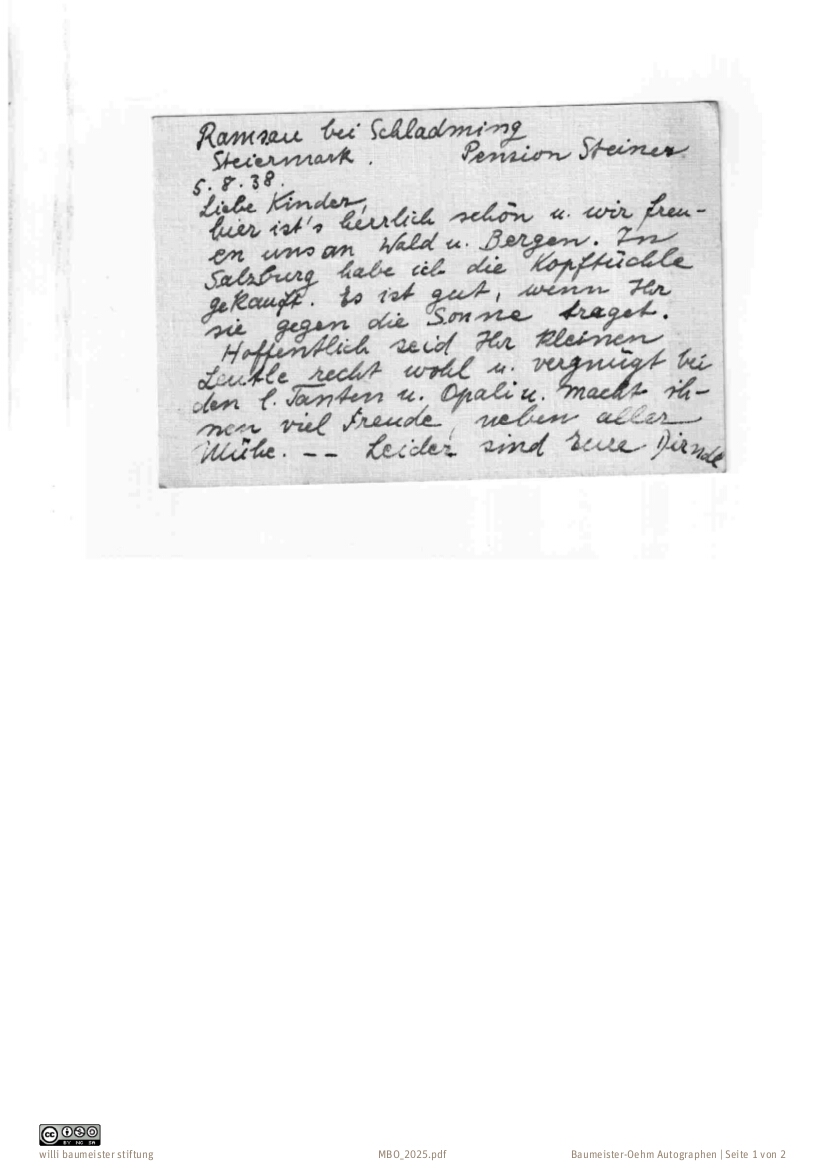 Ramsau bei Schladming
Steiermark. Pension Steiner
5.8.38.
Liebe Kinder,
hier ist's herrlich schön u. wir freu-
en uns an Wald u. Bergen. In
Salzburg habe ich die Kopftüchle
gekauft. Es ist gut, wenn Ihr
sie gegen die Sonne traget.
Hoffentlich seid Ihr kleinen
Leutle recht wohl u. vergnügt bei
den l. Tanten u. Opali u. macht ih-
nen viel Freude, neben aller
Mühe. -- Leider sind Eure Dirndl
BY NC SA
willi baumeister stiftung MBO_2025.pdf Baumeister-Oehm Autographen | Seite 1 von 2